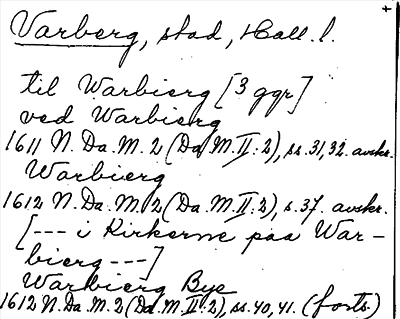 Varberg, stad, Hall. l.
til Warbierg [3 ggr]
ved Warbierg
1611 N. Da. M. 2 (Da. M. II: 2), ss. 31, 32. avskr.
Warbierg
1612 N. Da. M. 2 (Da. M. II: 2), s. 37. avskr.
[--- i Kirkerne paa War-
bierg ---]
Warbierg Bye
1612 N. Da. M. 2 (Da. M. II: 2), ss. 40, 41. (forts)